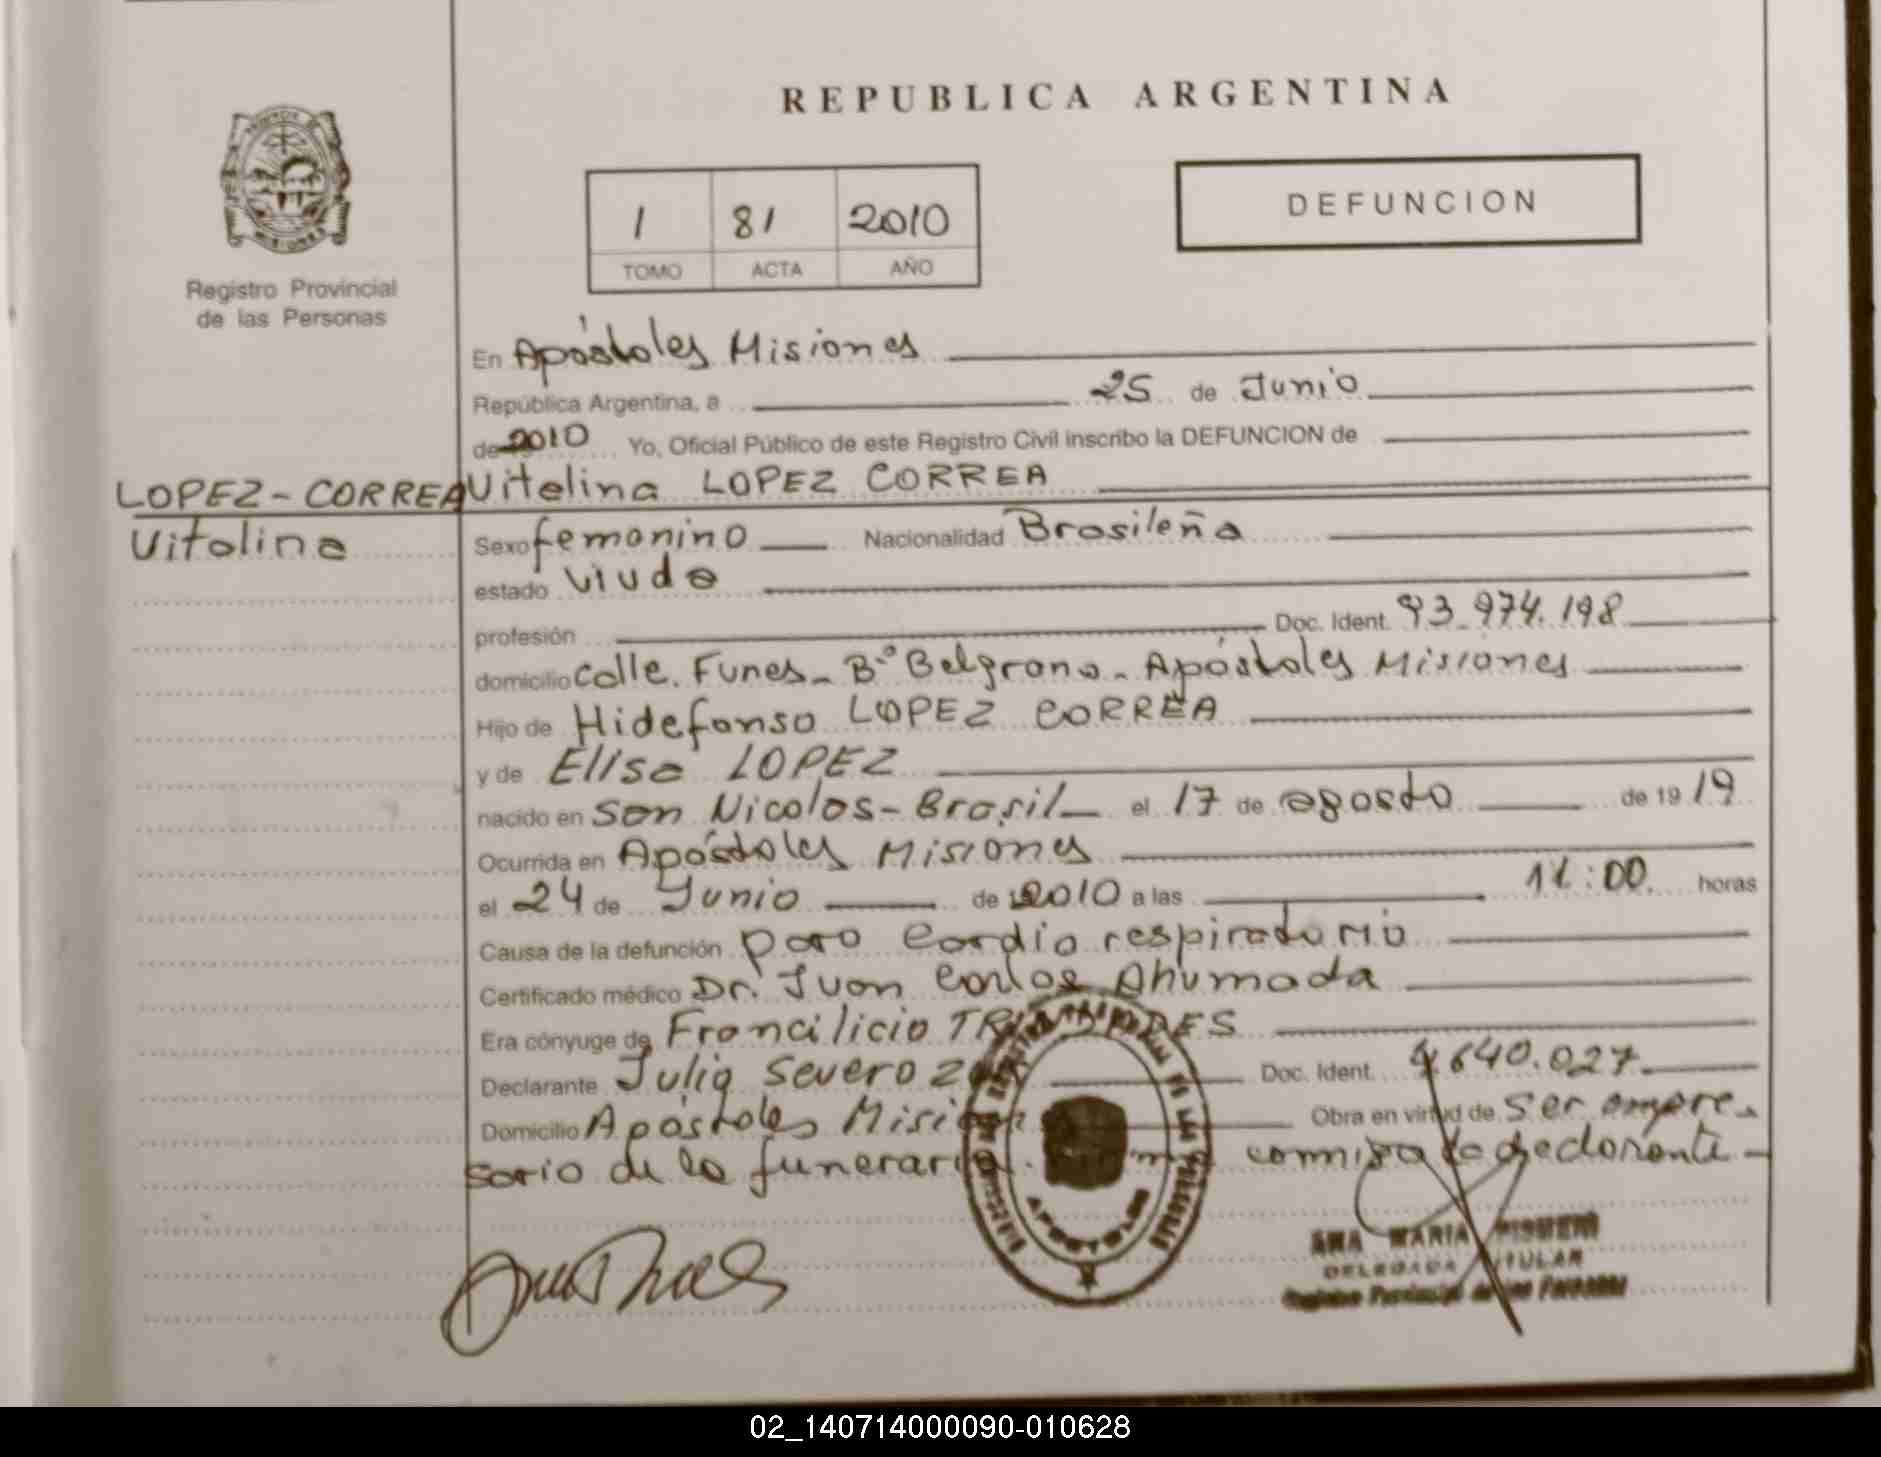 REPUBLICA ARGENTINA
DEFUNCION
1 81 2010
TOMO ACTA AÑO
Registro Provincial
de las Personas
En Apóstoles Misiones
República Argentina, a 25 de Junio
de 2010 Yo, Oficial Público de este Registro Civil inscribo la DEFUNCION de
LOPEZ-CORREA Vitalina LOPEZ CORREA
Vitalina
Sexo femenino Nacionalidad Brasileña
estado viuda
profesión Doc. Ident. 93.974.198
domicilio calle. Funes - Bº Belgrano - Apóstoles Misiones
Hijo de Hidefonso LOPEZ CORREA
y de Elisa LOPEZ
nacido en San Nicolas - Brasil el 17 de agosto de 1919
Ocurrida en Apóstoles Misiones
el 24 de Junio de 2010 a las 11:00 horas
Causa de la defunción paro cardio respiratorio
Certificado médico Dr. Juan Carlos Ahumada
Era cónyuge de Francilicio
Declarante Julio Severo Doc. Ident. 640.027
Domicilio Apóstoles Misiones Obra en virtud de ser empre-
sario de la funeraria. conmigo la declarante
APOSTOLES
ANA MARIA
DELEGADA TITULAR
Registro Provincial de las Personas
02_140714000090-010628